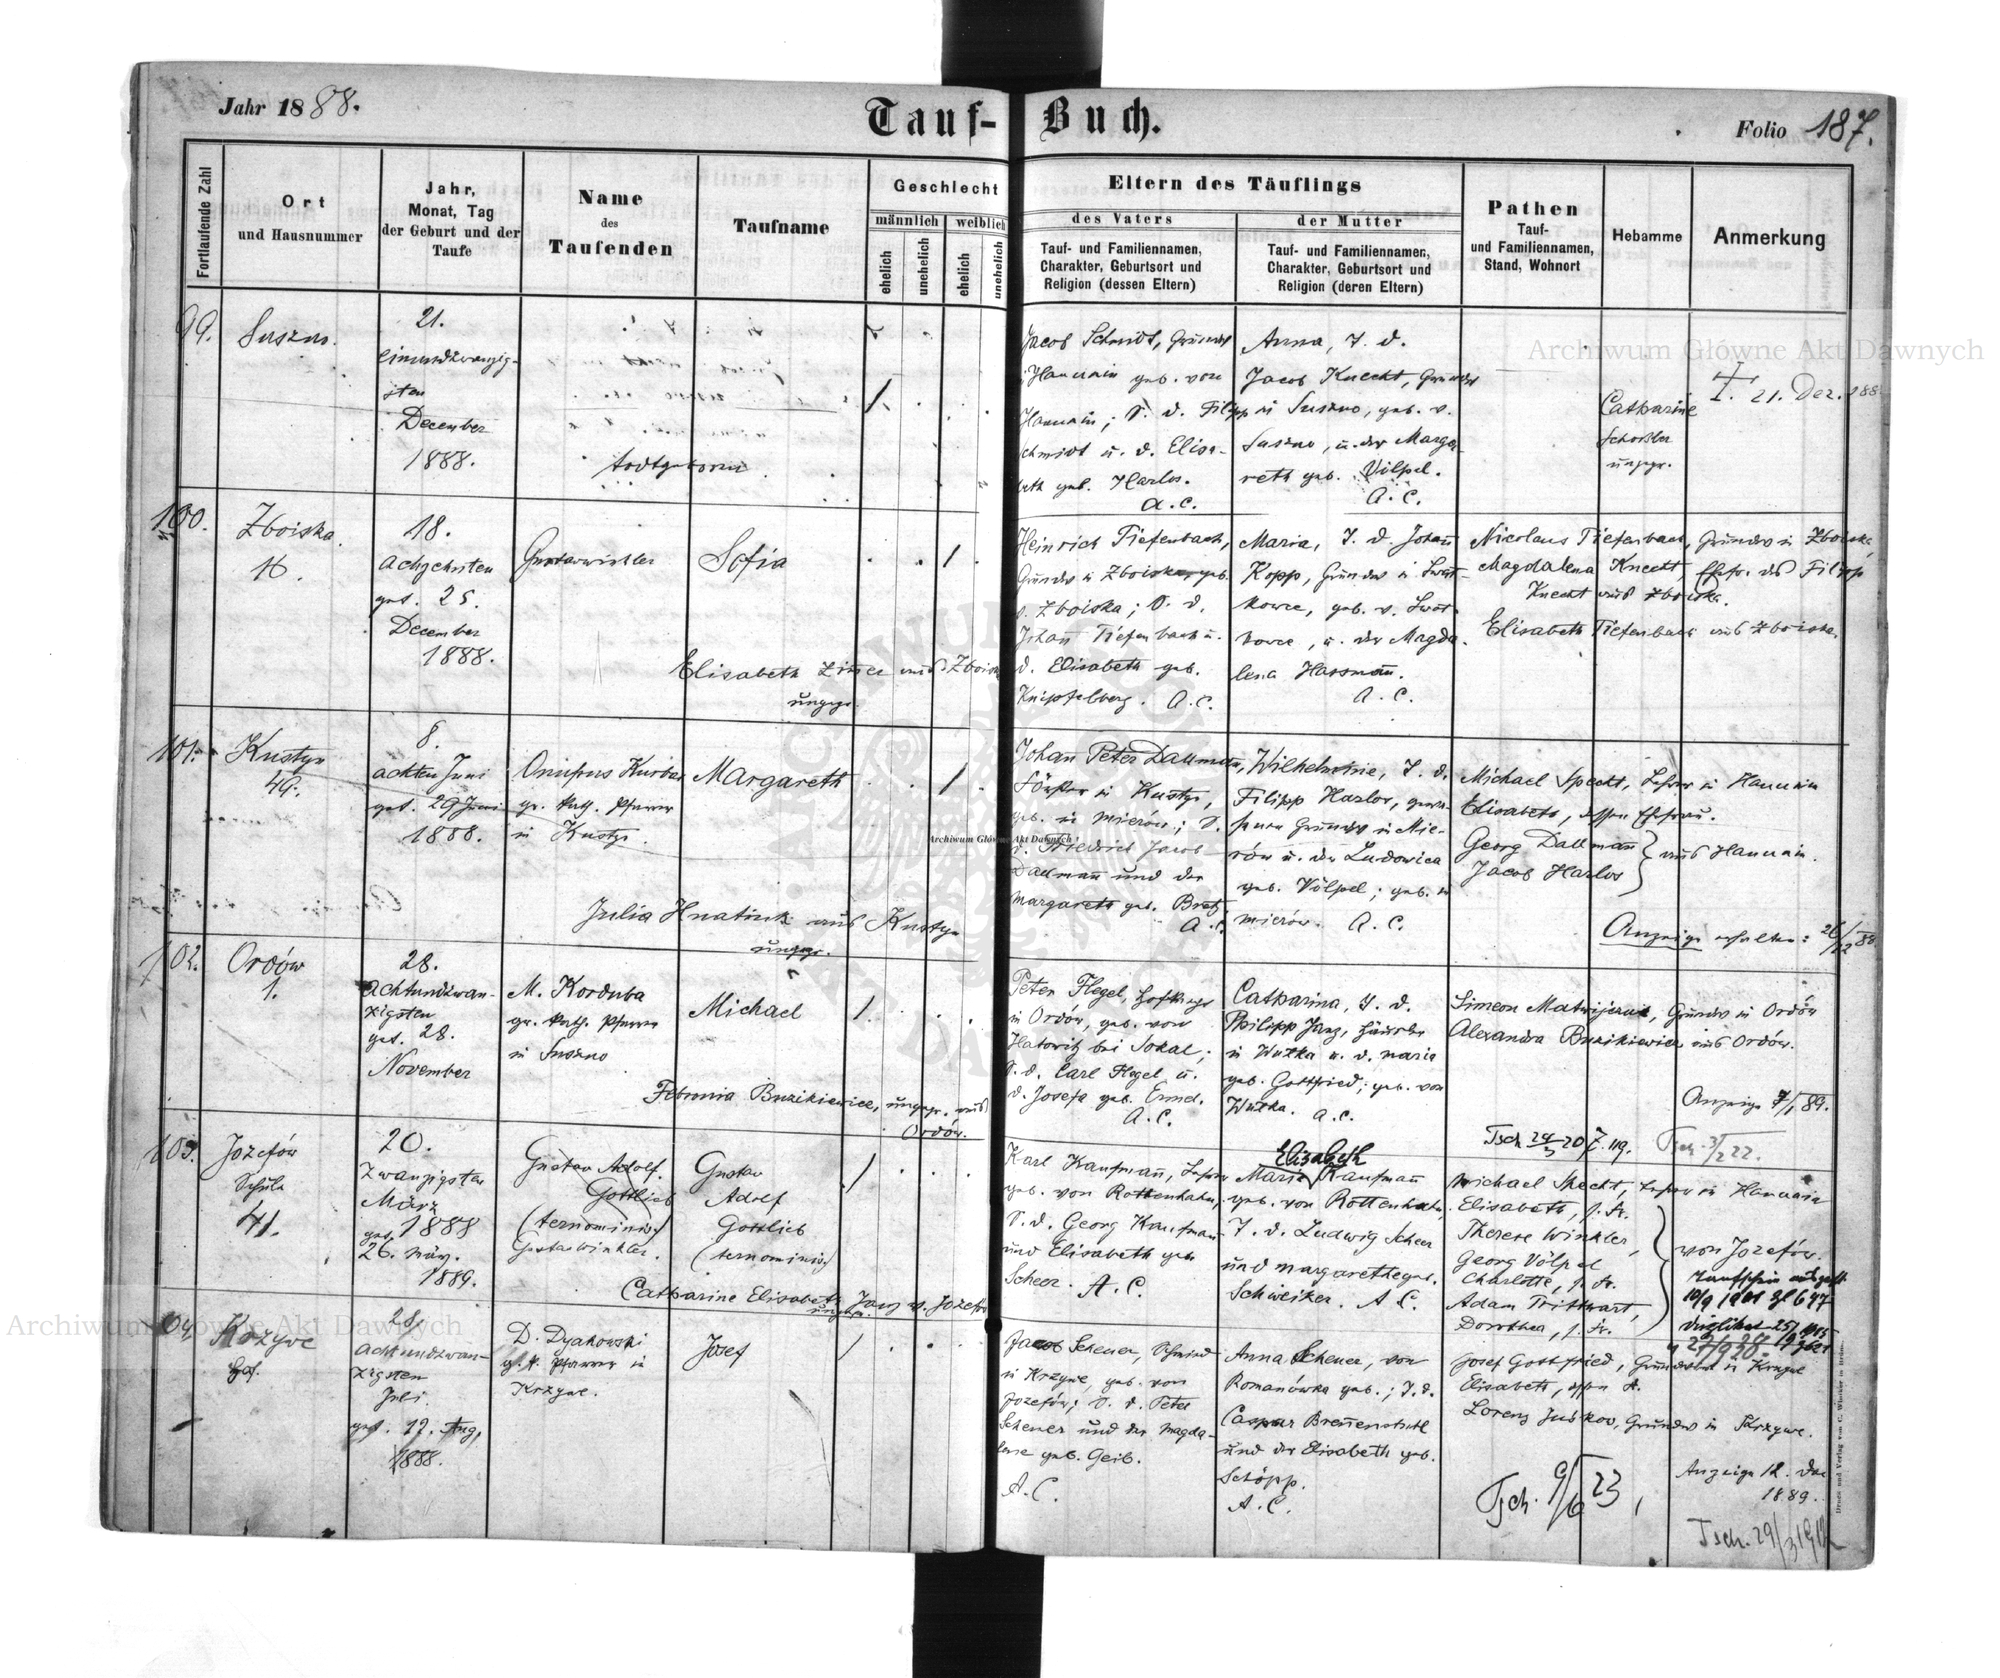 Jahr 1888.
Tauf-Buch.
Folio 187.
Fortlaufende Zahl
Ort
und Hausnummer
Jahr,
Monat, Tag
der Geburt und der
Taufe
Name
des
Taufenden
Taufname
Geschlecht
männlich
weiblich
ehelich
unehelich
ehelich
unehelich
Eltern des Täuflings
des Vaters
Tauf- und Familiennamen,
Charakter, Geburtsort und
Religion (dessen Eltern)
der Mutter
Tauf- und Familiennamen,
Charakter, Geburtsort und
Religion (deren Eltern)
Pathen
Tauf-
und Familiennamen,
Stand, Wohnort
Hebamme
Anmerkung
99.
Suszno.
21.
einundzwanzig-
sten
December
1888.
todtgeboren
Jacob Schmidt, Grundw
Hanunin geb. von
Hanunin; S. d. Filipp
Schmidt u. d. Elisa-
beth geb. Harlos.
A. C.
Anna, T. d.
Jacob Knecht, Grundw
in Suszno, geb. v.
Suszno, u. der Marga-
reth geb. Völpel.
A. C.
Catharine
ungepr.
21. Dez. 188
100.
Zboiska.
16.
18.
achzehnten
get. 25.
December
1888.
Gustav Winkler
Sofia
Elisabeth aus Zboiska
ungepr.
Heinrich Tiefenbach,
Grundw in Zboiska, geb.
v. Zboiska; S. d.
Johann Tiefenbach u.
d. Elisabeth geb.
Knipfelberg. A. C.
Maria, T. d. Johann
Kopp, Grundw in
geb. v.
u. der Magda-
lena Hassmann.
A. C.
Nicolaus Tiefenbach, Grundw in Zboiska,
Magdalena Knecht, Ehefr. des Filipp
Knecht aus Zboiska.
Elisabeth Tiefenbach aus Zboiska.
101.
Kustyn
49.
8.
achten Juni
get. 29 Juni
1888.
Onufrius Kurban
gr. kath. Pfarrer
in Kustyn.
Margareth
Julia Hnatiuk aus Kustyn
ungepr.
Johann Peter Dallmann,
Förster in Kustyn,
geb. in Mierów; S.
d. Friedrich Jacob
Dallmann und der
Margareth geb. Bretz
A. C.
Wilhelmine, T. d.
Filipp Harlos, gewe-
senen Grundw in Mie-
rów u. der Ludowica
geb. Völpel; geb. in
Mierów. A. C.
Michael Specht, Lehrer in Hanunin
Elisabeth, dessen Ehefrau.
Georg Dallmann
Jacob Harlos
aus Hanunin.
Anzeige erhalten: 26/12 88
102.
Ordów
1.
28.
achtundzwan-
zigsten
get. 28.
November
M. Korduba
gr. kath. Pfarrer
in Suszno
Michael
Febronia Buzikiewicz, ungepr. aus
Ordów.
Peter Flegel,
in Ordów, geb. von
Hatowitz bei Sokal;
S. d. Carl Flegel u.
d. Josefa geb. Ernd.
A. C.
Catharina, T. d.
Philipp Janz, Häusler
in Wulka u. d. Maria
geb. Gottfried; geb. von
Wulka. A. C.
Simeon Matwijczuk, Grundw in Ordów
Alexandra Buzikiewicz aus Ordów.
Anzeige 7/1 89.
Tsch. 3/2 22.
103.
Józefów
Schule
41.
20.
zwanzigsten
März
1888
get.
26. März.
1889.
Gustav Adolf
Gottlieb
(ternominis)
Gustav Winkler.
Gustav
Adolf
Gottlieb
(ternominis)
Catharine Elisabeth Janz v. Józefów
ungepr.
Karl Kaufmann, Lehrer
geb. von Rottenhahn,
S. d. Georg Kaufmann
und Elisabeth geb.
Scheer. A. C.
Elisabeth
Maria Kaufmann
geb. von Rottenhahn,
T. d. Ludwig Scheer
und Margarethe geb.
Schweiker. A. C.
Michael Specht, Lehrer in Hanunin
Elisabeth, s. Fr.
Therese Winkler,
Georg Völpel
Charlotte, s. Fr.
Adam Trittwart,
Dorothea, s. Fr.
von Józefów.
Taufschein ausgest.
10/9 1901 Zl 647
104.
Krzywe
28.
achtundzwan-
zigsten
Juli
get. 12. Aug.
1888.
D. Dyakowski
g. k. Pfarrer in
Krzywe.
Josef
Jacob Scheuer, Schmied
in Krzywe, geb. von
Józefów; S. d. Peter
Scheuer und der Magda-
lene geb. Geib.
A. C.
Anna Scheuer, von
Romanówka geb.; T. d.
Caspar Brennenstuhl
und der Elisabeth geb.
Schöpp.
A. C.
Josef Gottfried, Grundwirt in Krzywe
Elisabeth, dessen Fr.
Lorenz Juskow, Grundw in Krzywe.
Tsch. 9/6 23,
Anzeige 12. Dec
1889.
Tsch. 29/3 1912
Druck und Verlag von C. Winiker in Brünn.
Archiwum Główne Akt Dawnych
Archiwum Główne Akt Dawnych
Archiwum Główne Akt Dawnych